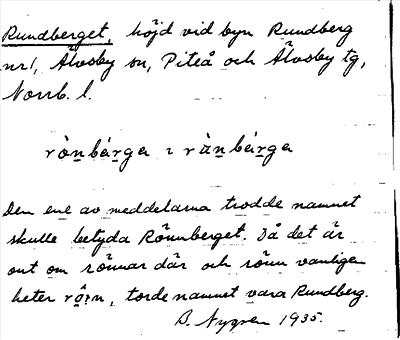 Rundberget, höjd vid byn Rundberg
nr1, Älvsby sn, Piteå och Älvsby tg,
Norrb. l.
rò̀ṉbárga ı ràṉbárga
Den ene av meddelarna trodde namnet
skulle betyda Rönnberget. Då det är
ont om rönnar där och rönn vanligen
heter torde namnet vara Rundberg.
B. Nygren 1935.